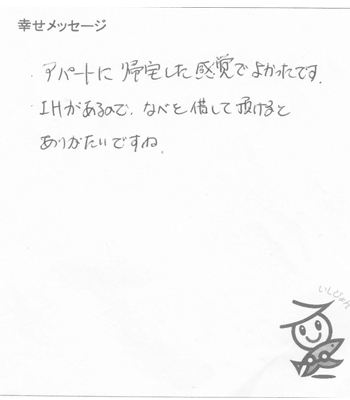 幸せメッセージ
・アパートに帰宅した感覚でよかったです。
・IHがあるので、なべを借して頂けると
ありがたいですね。
いしぴょん